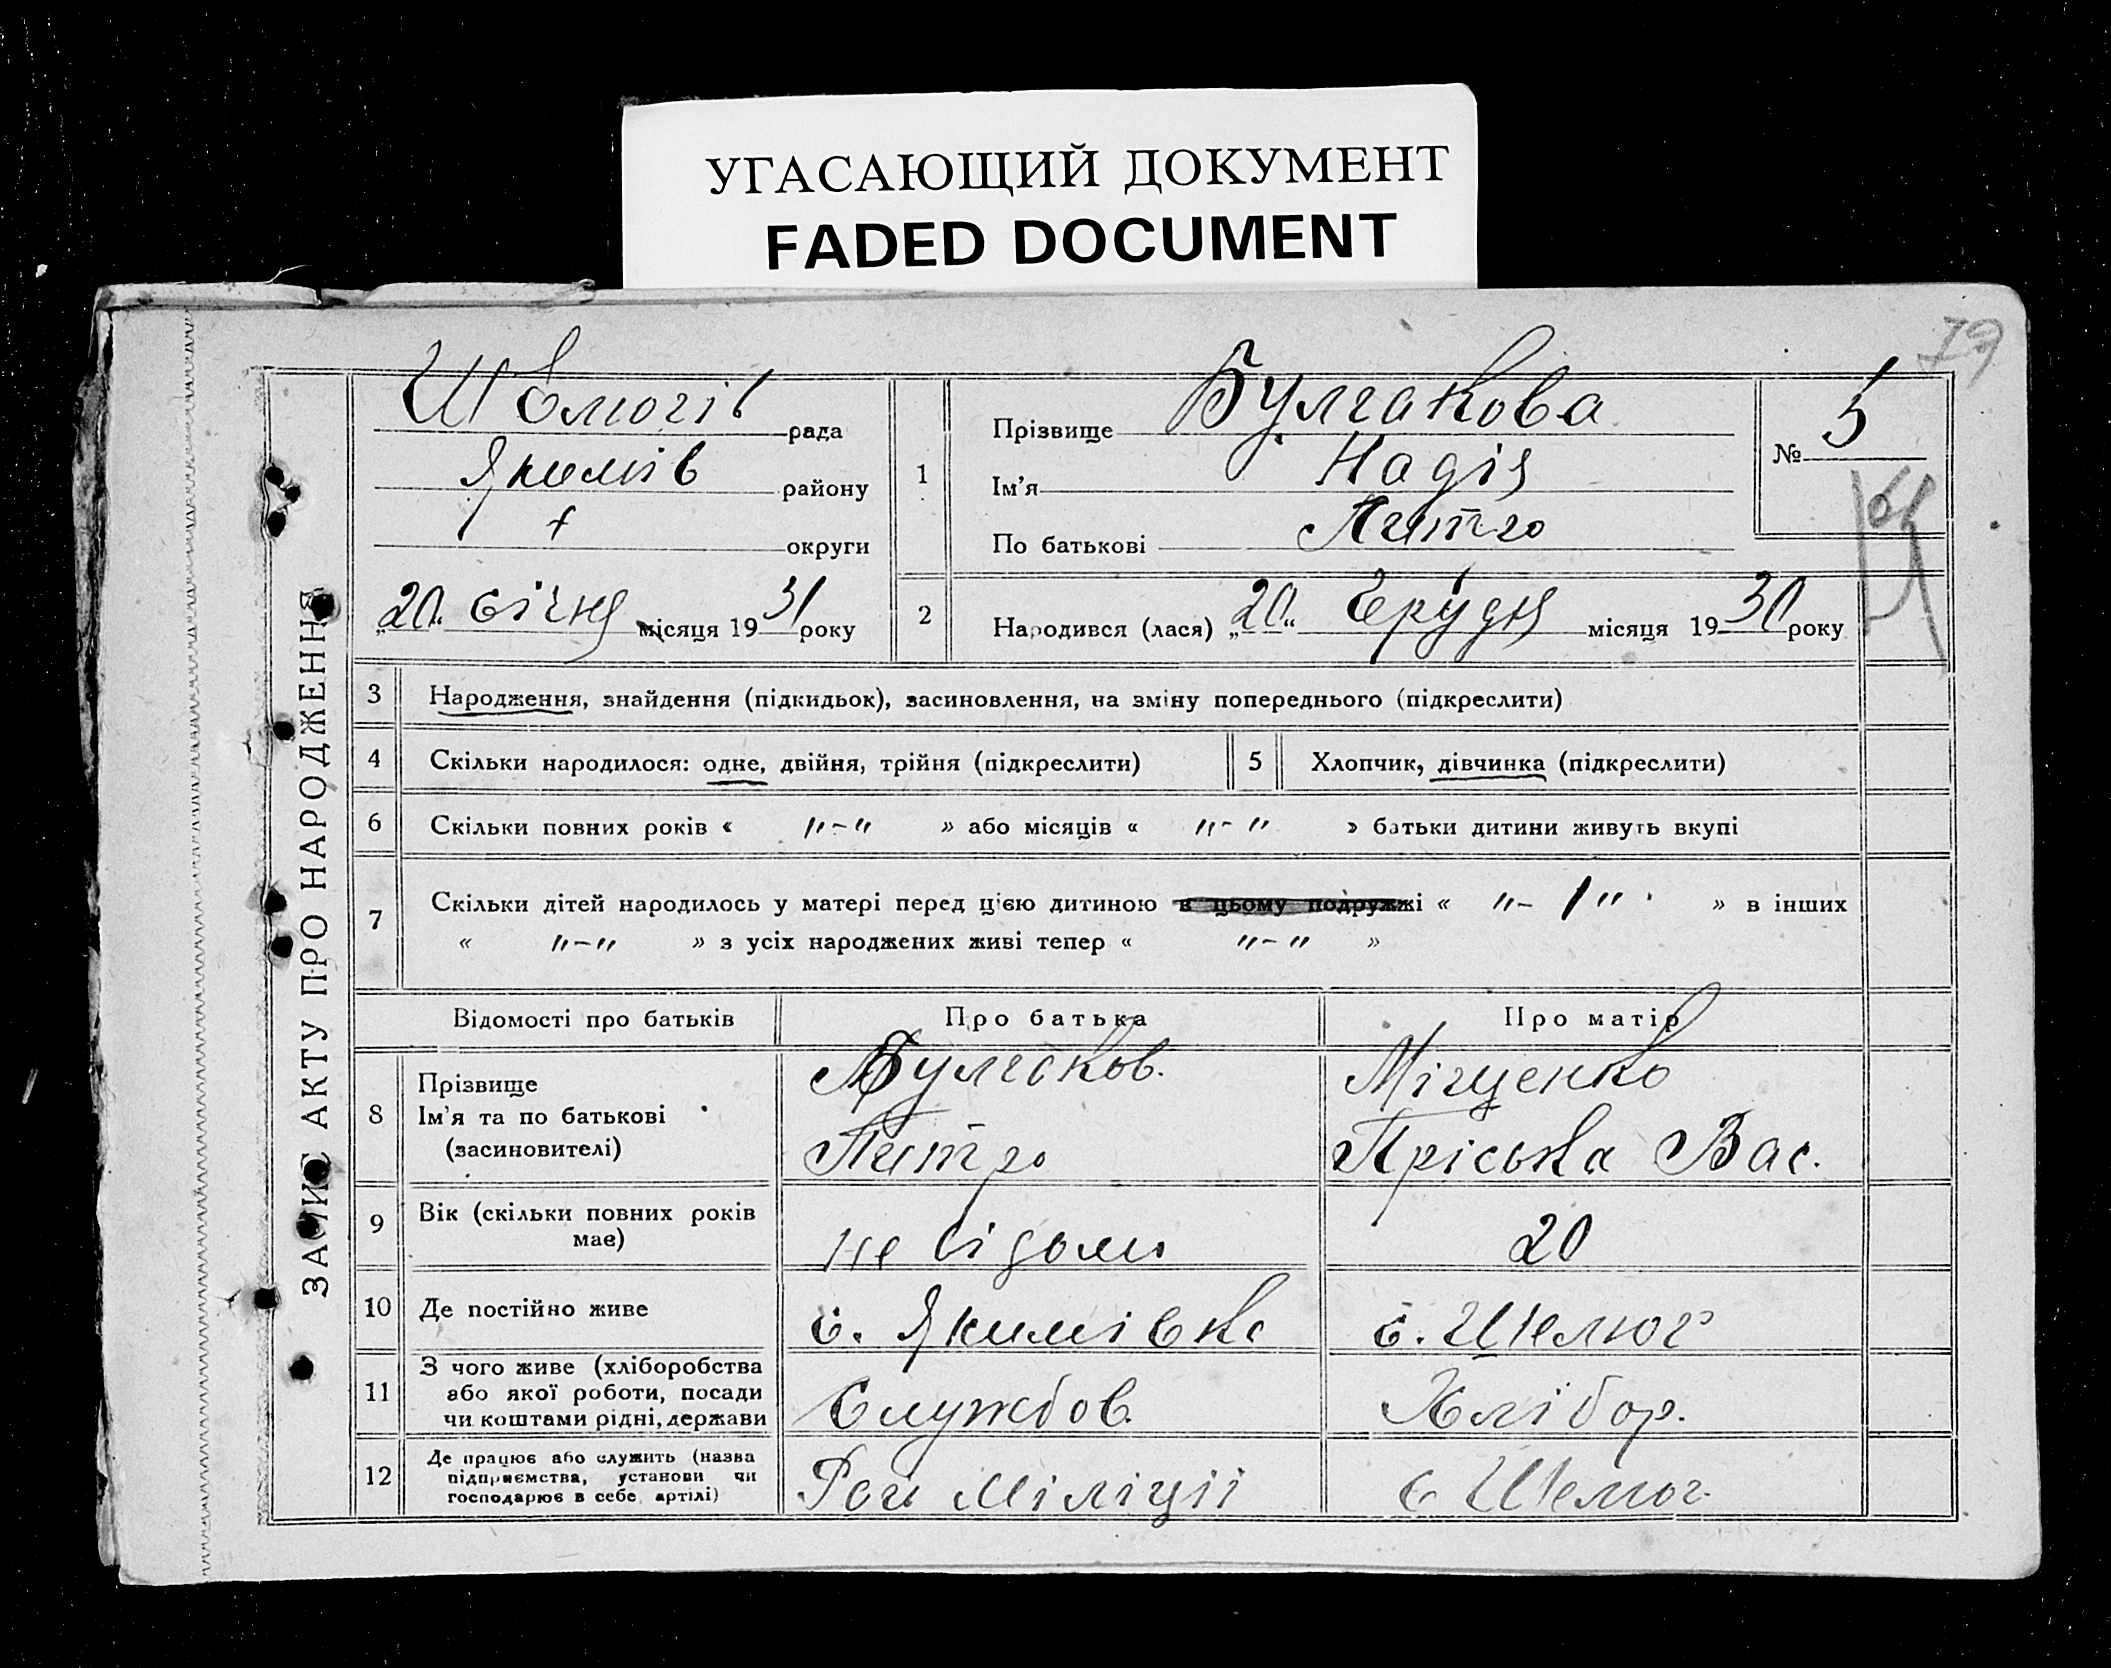 УГАСАЮЩИЙ ДОКУМЕНТ
FADED DOCUMENT
79
ЗАПИС АКТУ ПРО НАРОДЖЕННЯ
Шелюгів рада
Якимів району
округи
„20“ січня місяця 1931 року
1
Прізвище Булгакова
Ім'я Надія
По батькові Петро
№ 5
2
Народився (лася) „20“ Грудня місяця 1930 року
3 Народження, знайдення (підкидьок), засиновлення, на зміну попереднього (підкреслити)
4 Скільки народилося: одне, двійня, трійня (підкреслити) 5 Хлопчик, дівчинка (підкреслити)
6 Скільки повних років « „-“ » або місяців « „-“ » батьки дитини живуть вкупі
7 Скільки дітей народилось у матері перед цією дитиною в цьому подружжі « „- 1 “ » в інших
« „-“ » з усіх народжених живі тепер « „-“ »
Відомості про батьків Про батька Про матір
8 Прізвище Булгаков. Міщенко
Ім'я та по батькові
(засиновителі) Петро Пріська Вас.
9 Вік (скільки повних років має) не відомо 20
10 Де постійно живе с. Якимівка с. Шелюг
11 З чого живе (хліборобства
або якої роботи, посади
чи коштами рідні, держави Службов. Хлібор.
12 Де працює або служить (назва
підприємства, установи чи
господарює в себе, артілі) Рай міліції с Шелюг.